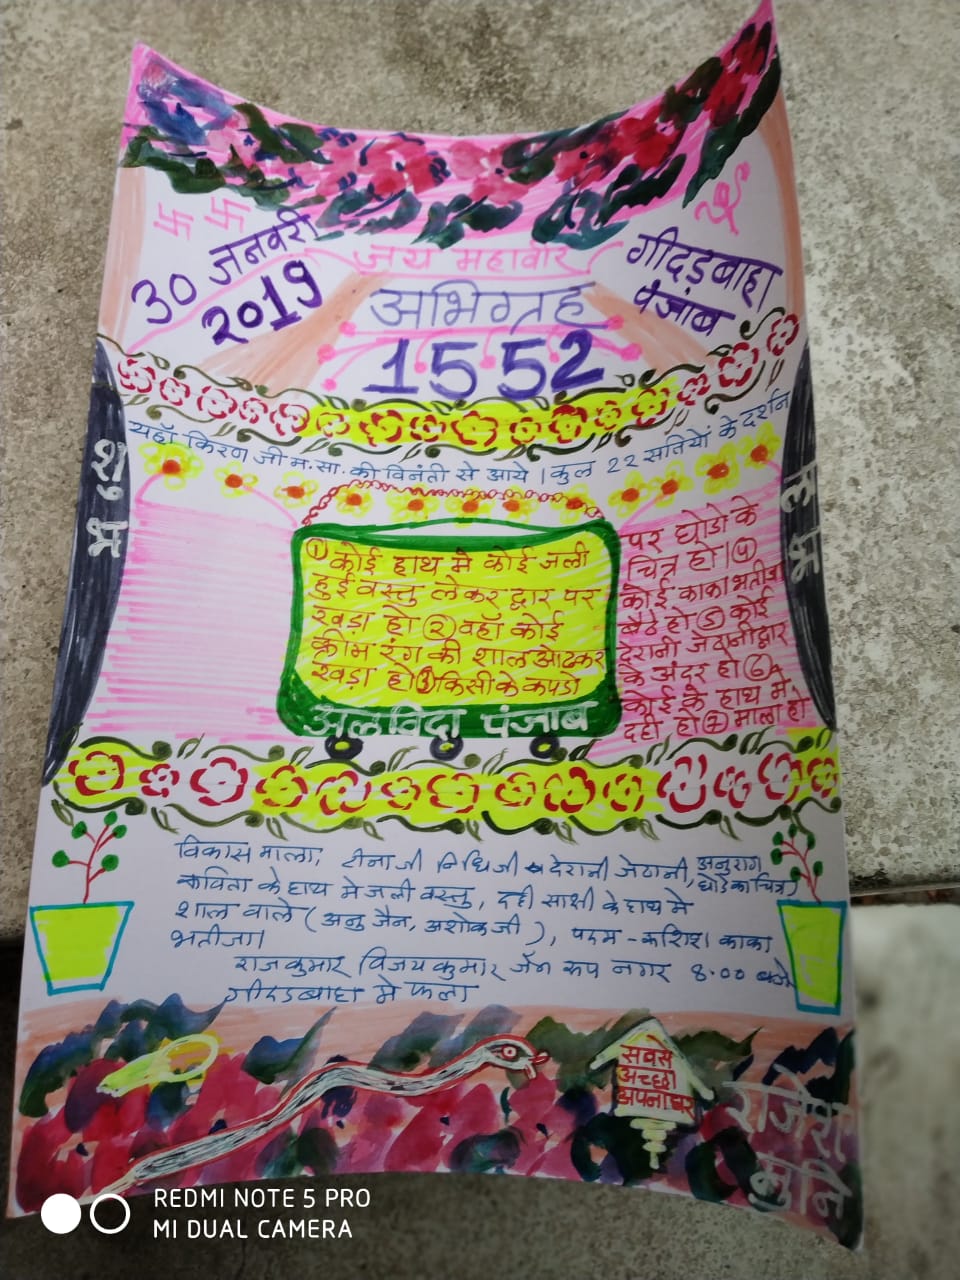 30 जनवरी
2019
जय महावीर
गीदड़बाहा
पंजाब
अभिग्रह
1552
यहाँ किरण जी म.सा. की विनंती से आये। कुल 22 सतियों के दर्शन
शुभ
लाभ
① कोई हाथ मे कोई जली
हुई वस्तु लेकर द्वार पर
खड़ा हो ② वहाँ कोई
क्रीम रंग की शाल ओढकर
खड़ा हो ③ किसी के कपडो
पर घोडो के
चित्र हो। ④
कोई काका भतीजा
बैठे हो ⑤ कोई
देरानी जेठानी द्वार
के अंदर हो ⑥
कोई के हाथ मे
दही हो ⑦ माला हो
अलविदा पंजाब
विकास माला, टीनाजी निधिजी देरानी जेठानी, अनुराग घोडे का चित्र,
कविता के हाथ मे जली वस्तु, दही साक्षी के हाथ मे
शाल वाले (अनु जैन, अशोक जी), पदम - कशिश काका
भतीजा।
राजकुमार विजय कुमार जैन रूप नगर 8.00 बजे
गीदडबाहा मे फला
सबसे
अच्छा
अपना घर
राजेश
मुनि
REDMI NOTE 5 PRO
MI DUAL CAMERA